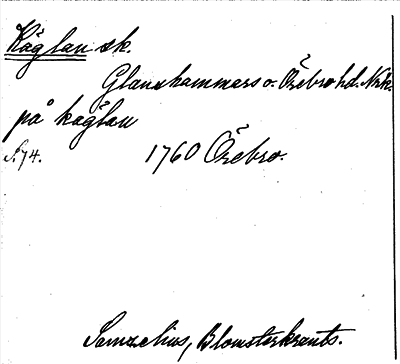 Käglan sk.
Glanshammars o. Örebro hd. Nrk.
på kaglan
S. 74.
1760 Örebro.
Samzelius, Blomsterkrants.